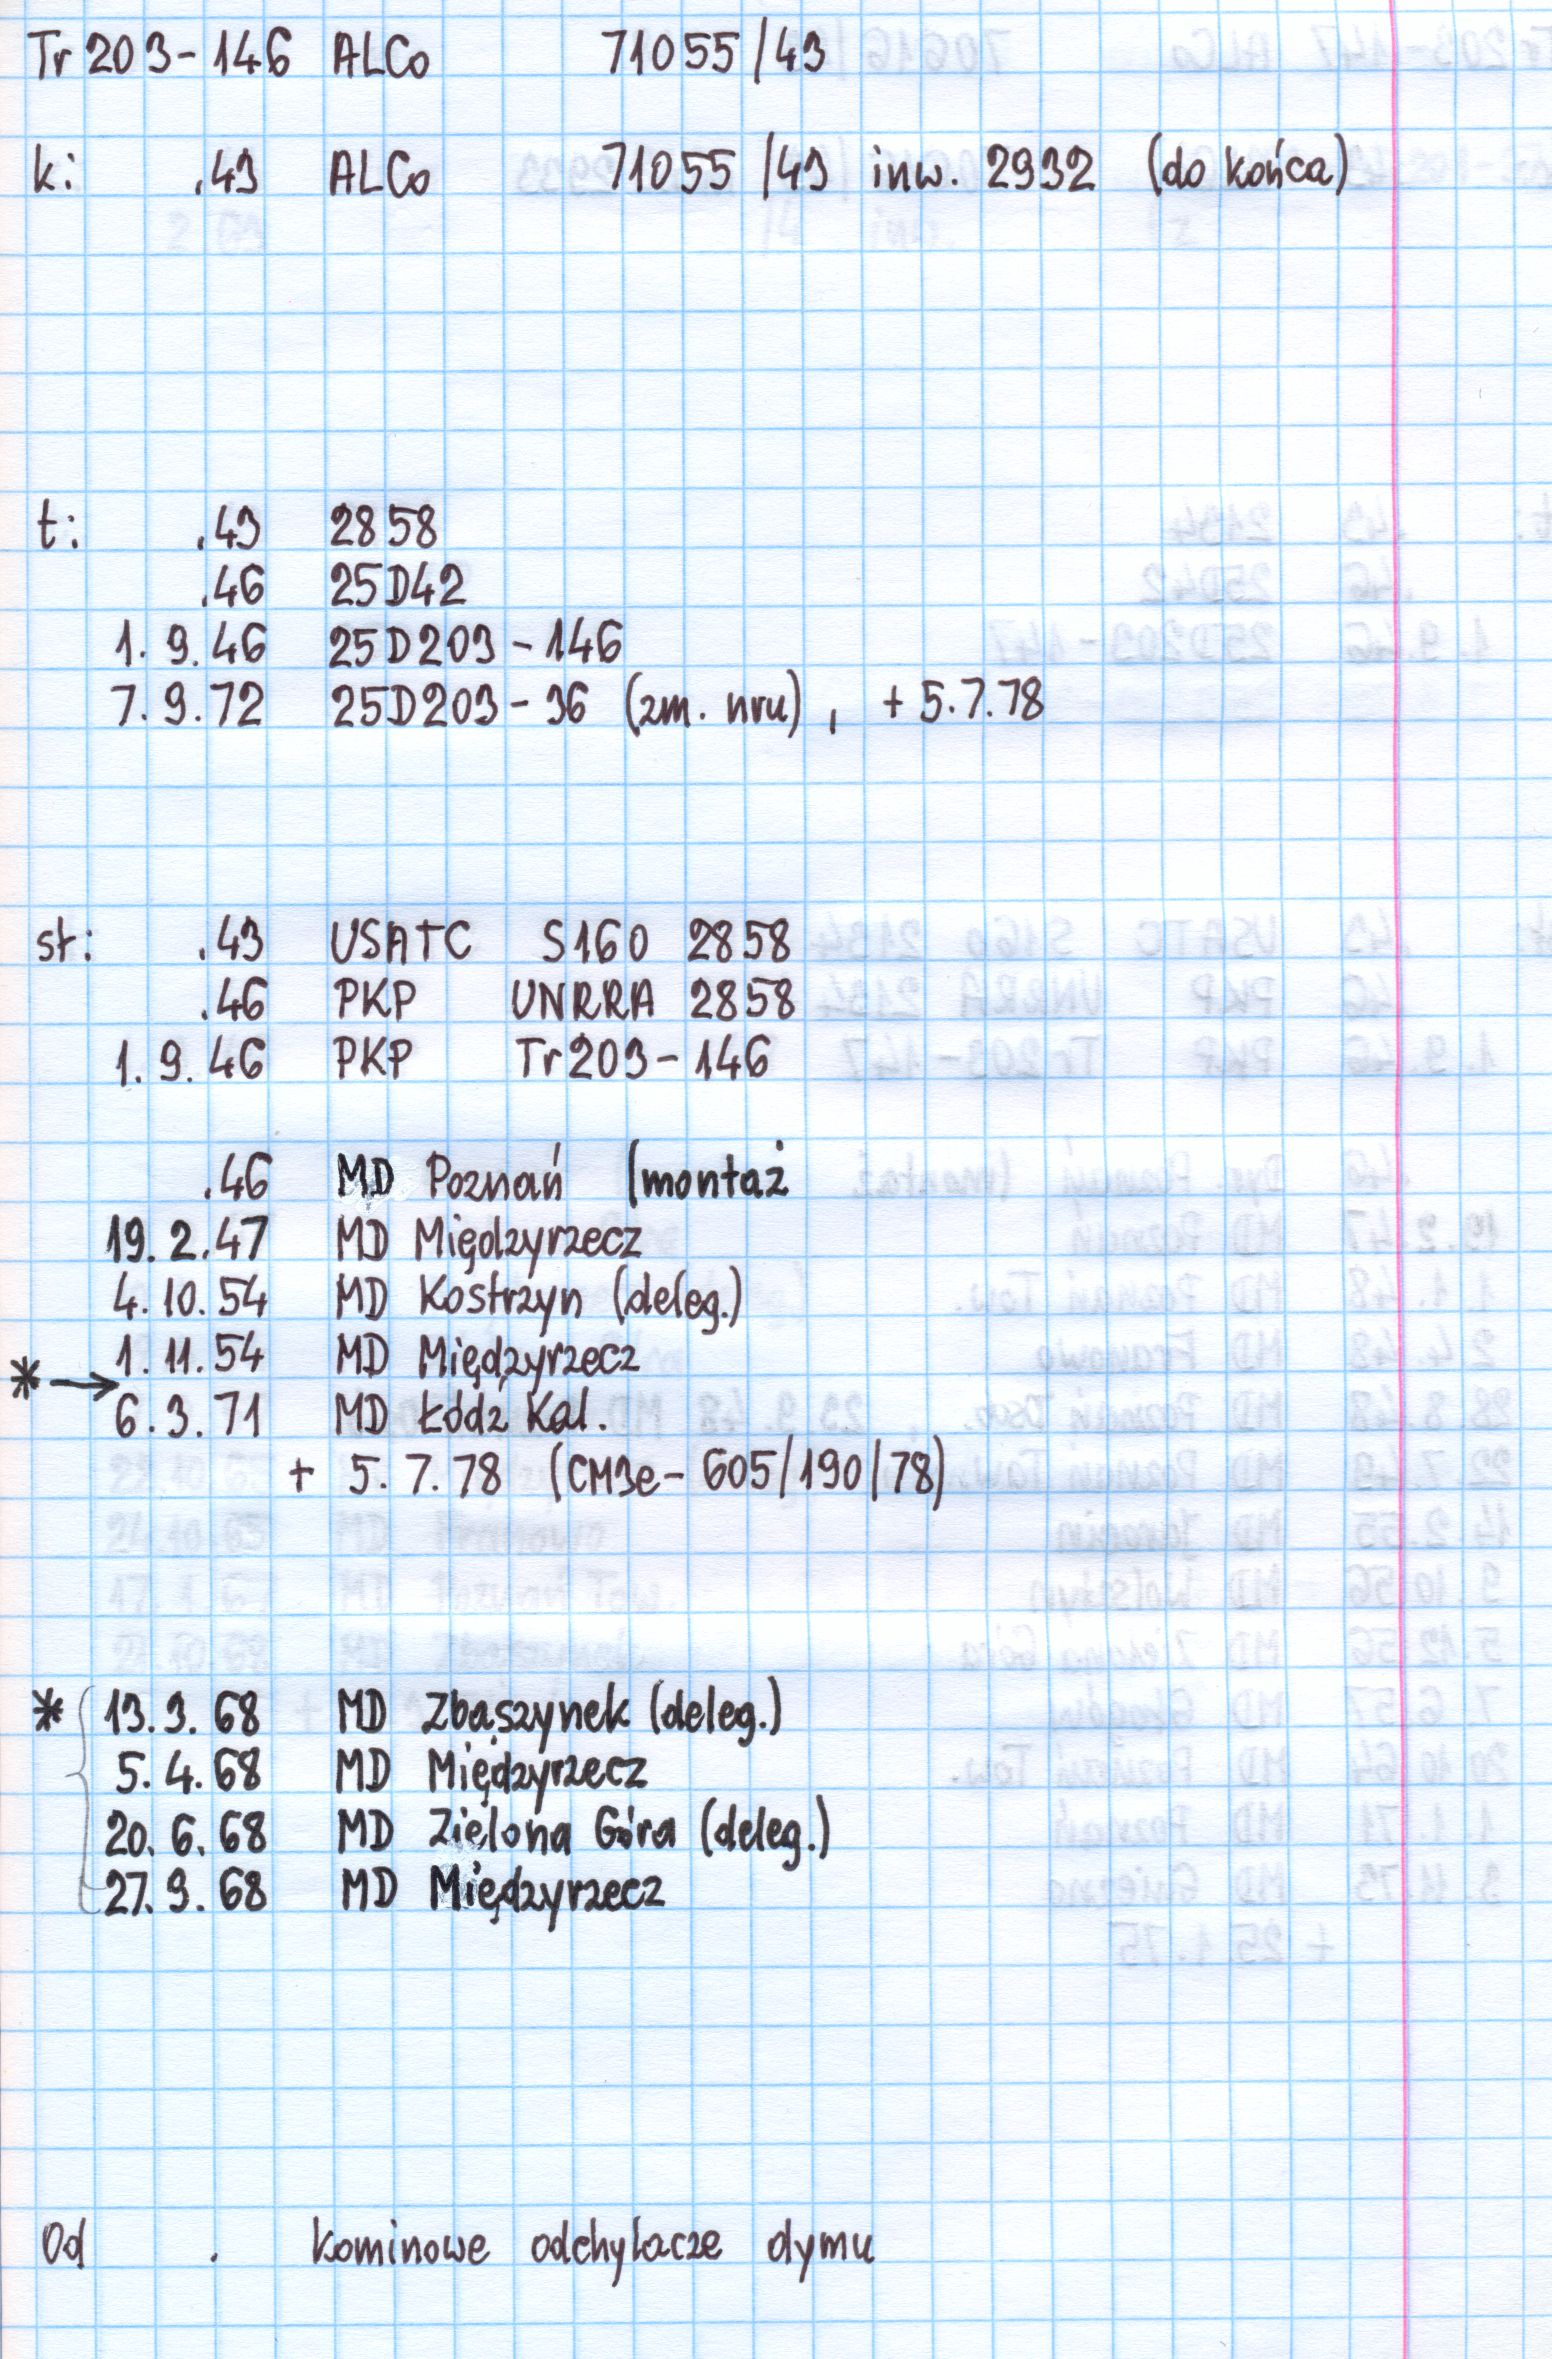 Tr 203-146 ALCo 71055/43
k: .43 ALCo 71055/43 inw. 2932 (do końca)
t: .43 2858
.46 25D42
1. 9.46 25D203-146
7. 9.72 25D203-36 (zm. nru), + 5.7.78
st: .43 USATC S160 2858
.46 PKP UNRRA 2858
1. 9.46 PKP Tr203-146
.46 MD Poznań (montaż
19. 2.47 MD Międzyrzecz
4. 10. 54 MD Kostrzyn (deleg.)
1. 11. 54 MD Międzyrzecz
* →
6. 3. 71 MD Łódź Kal.
+ 5. 7.78 (CM3e-605/190/78)
* 13. 3. 68 MD Zbąszynek (deleg.)
5. 4. 68 MD Międzyrzecz
20. 6. 68 MD Zielona Góra (deleg.)
27. 9. 68 MD Międzyrzecz
Od . kominowe odchylacze dymu